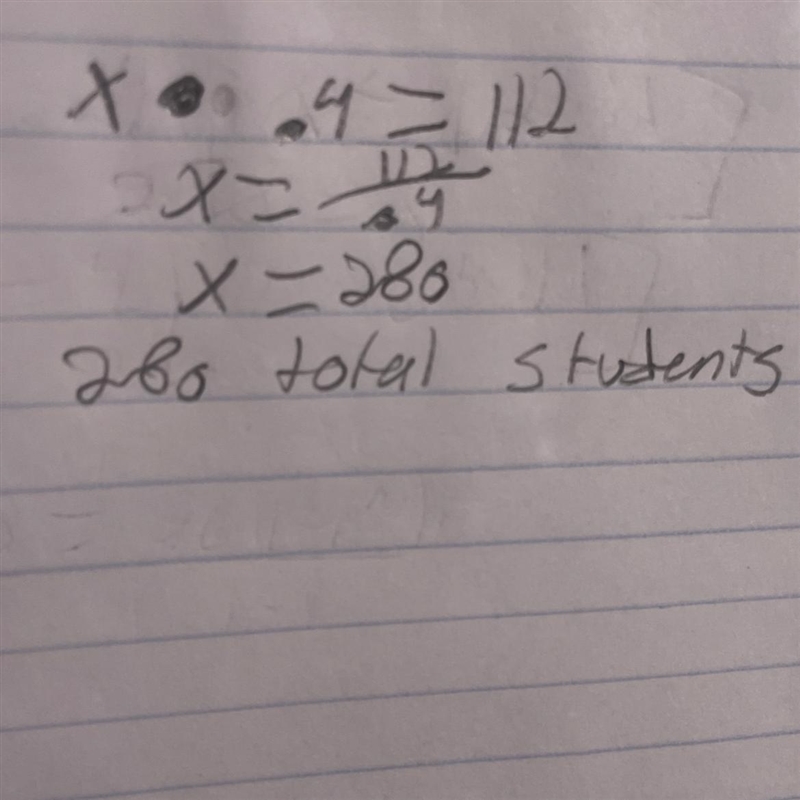 x • .4 = 112
x = 112/.4
x = 280
280 total students